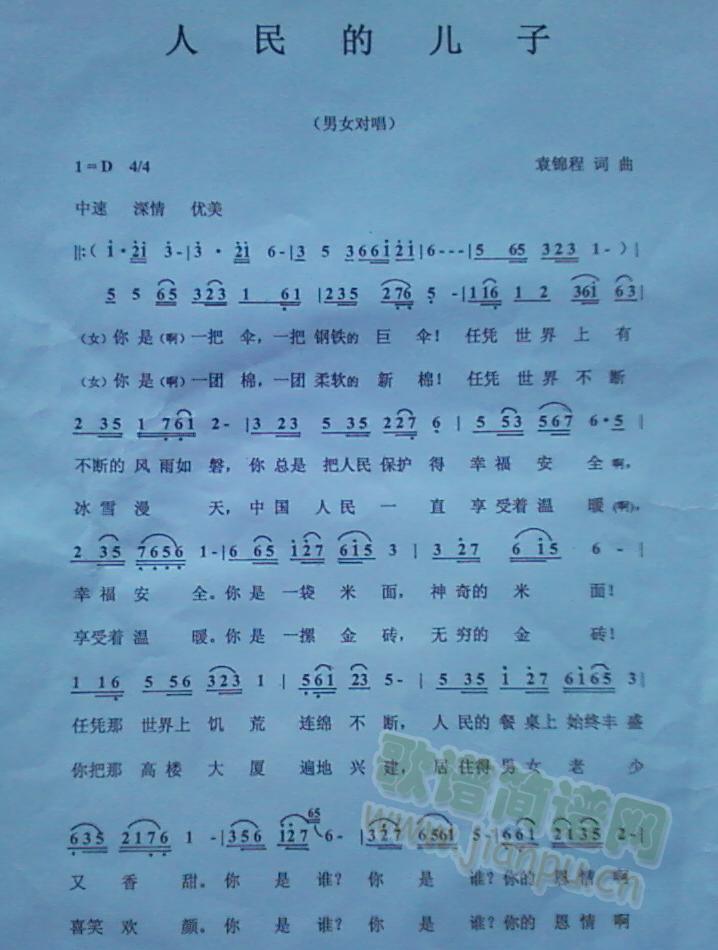 人 民 的 儿 子
（男女对唱）
1=D 4/4 袁锦程 词 曲
中速 深情 优美
‖:( i·2i 3-|3·2i 6-|3 5 366i2i|6---|5 65 323 1-)|
5 5 65 323 1 61 |235 276 5 -|116 1 2 361 63|
(女)你 是(啊)一把 伞，一把 钢铁的 巨 伞！ 任凭 世 界 上 有
(女)你 是(啊)一团 棉，一团 柔软的 新 棉！ 任凭 世 界 不 断
2 35 1 761 2- |3 23 5 35 227 6 | 5 53 567 6·5 |
不断的 风 雨如 磐，你 总是 把人民 保护 得 幸 福 安 全 啊，
冰 雪 漫 天，中 国 人 民 一 直 享 受着 温 暖(啊)，
2 35 7656 1-|6 65 i27 6i5 3 | 3 27 6 i5 6 -|
幸 福 安 全。你 是 一 袋 米 面， 神 奇的 米 面！
享受着 温 暖。你 是 一 摞 金 砖， 无 穷的 金 砖！
1 16 5 56 323 1 | 561 23 5- | 5 35 i 27 6i65 3|
任凭那 世界上 饥 荒 连绵 不 断， 人 民的 餐 桌上 始终丰 盛
你把那 高楼 大 厦 遍地 兴 建， 居 住得 男 女 老 少
635 2176 1 -|356 i27 65 6-|327 6561 5-|661 2135 2-|
又 香 甜。你 是 谁？你 是 谁？你的 恩 情 啊
喜 笑 欢 颜。你 是 谁？你 是 谁？你的 恩 情 啊
歌谱简谱网
www.jianpu.cn